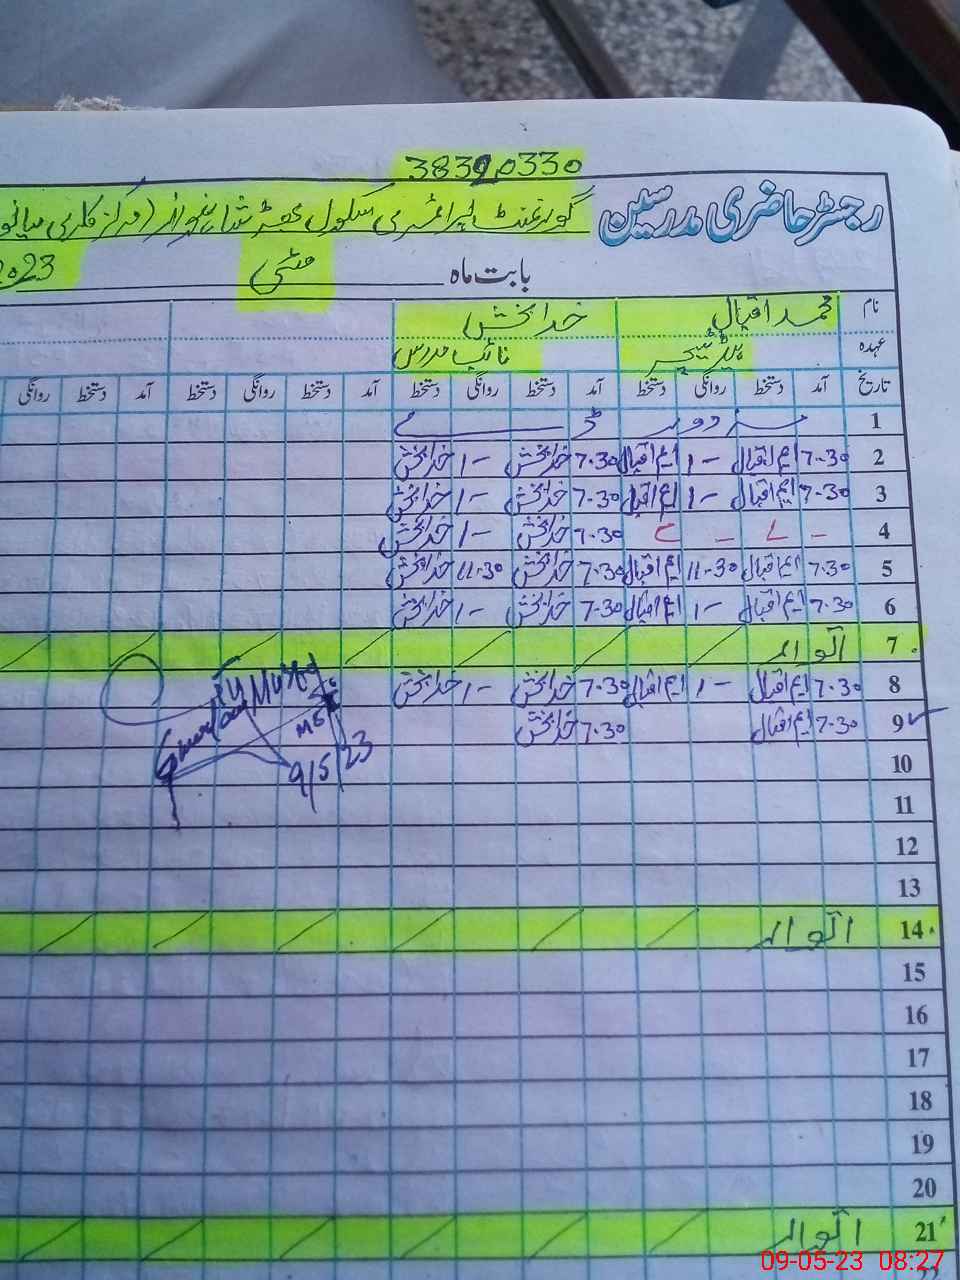 38320330
رجسٹر حاضری مدرسین گورنمنٹ پرائمری سکول
بابت ماہ مئی 2023
نام محمد اقبال خدا بخش
عہدہ ہیڈ ٹیچر نائب مدرس
تاریخ آمد دستخط روانگی دستخط آمد دستخط روانگی دستخط آمد دستخط روانگی دستخط آمد دستخط روانگی
1
2 7.30 ایم اقبال 1- ایم اقبال 7.30 خدا بخش 1- خدا بخش
3 7.30 ایم اقبال 1- ایم اقبال 7.30 خدا بخش 1- خدا بخش
4 7.30 خدا بخش 1- خدا بخش
5 7.30 ایم اقبال 11.30 ایم اقبال 7.30 خدا بخش 11.30 خدا بخش
6 7.30 ایم اقبال 1- ایم اقبال 7.30 خدا بخش 1- خدا بخش
7 اتوار
8 7.30 ایم اقبال 1- ایم اقبال 7.30 خدا بخش 1- خدا بخش
9 7.30 ایم اقبال 7.30 خدا بخش
9/5/23
10
11
12
13
14 اتوار
15
16
17
18
19
20
21 اتوار
09-05-23 08:27